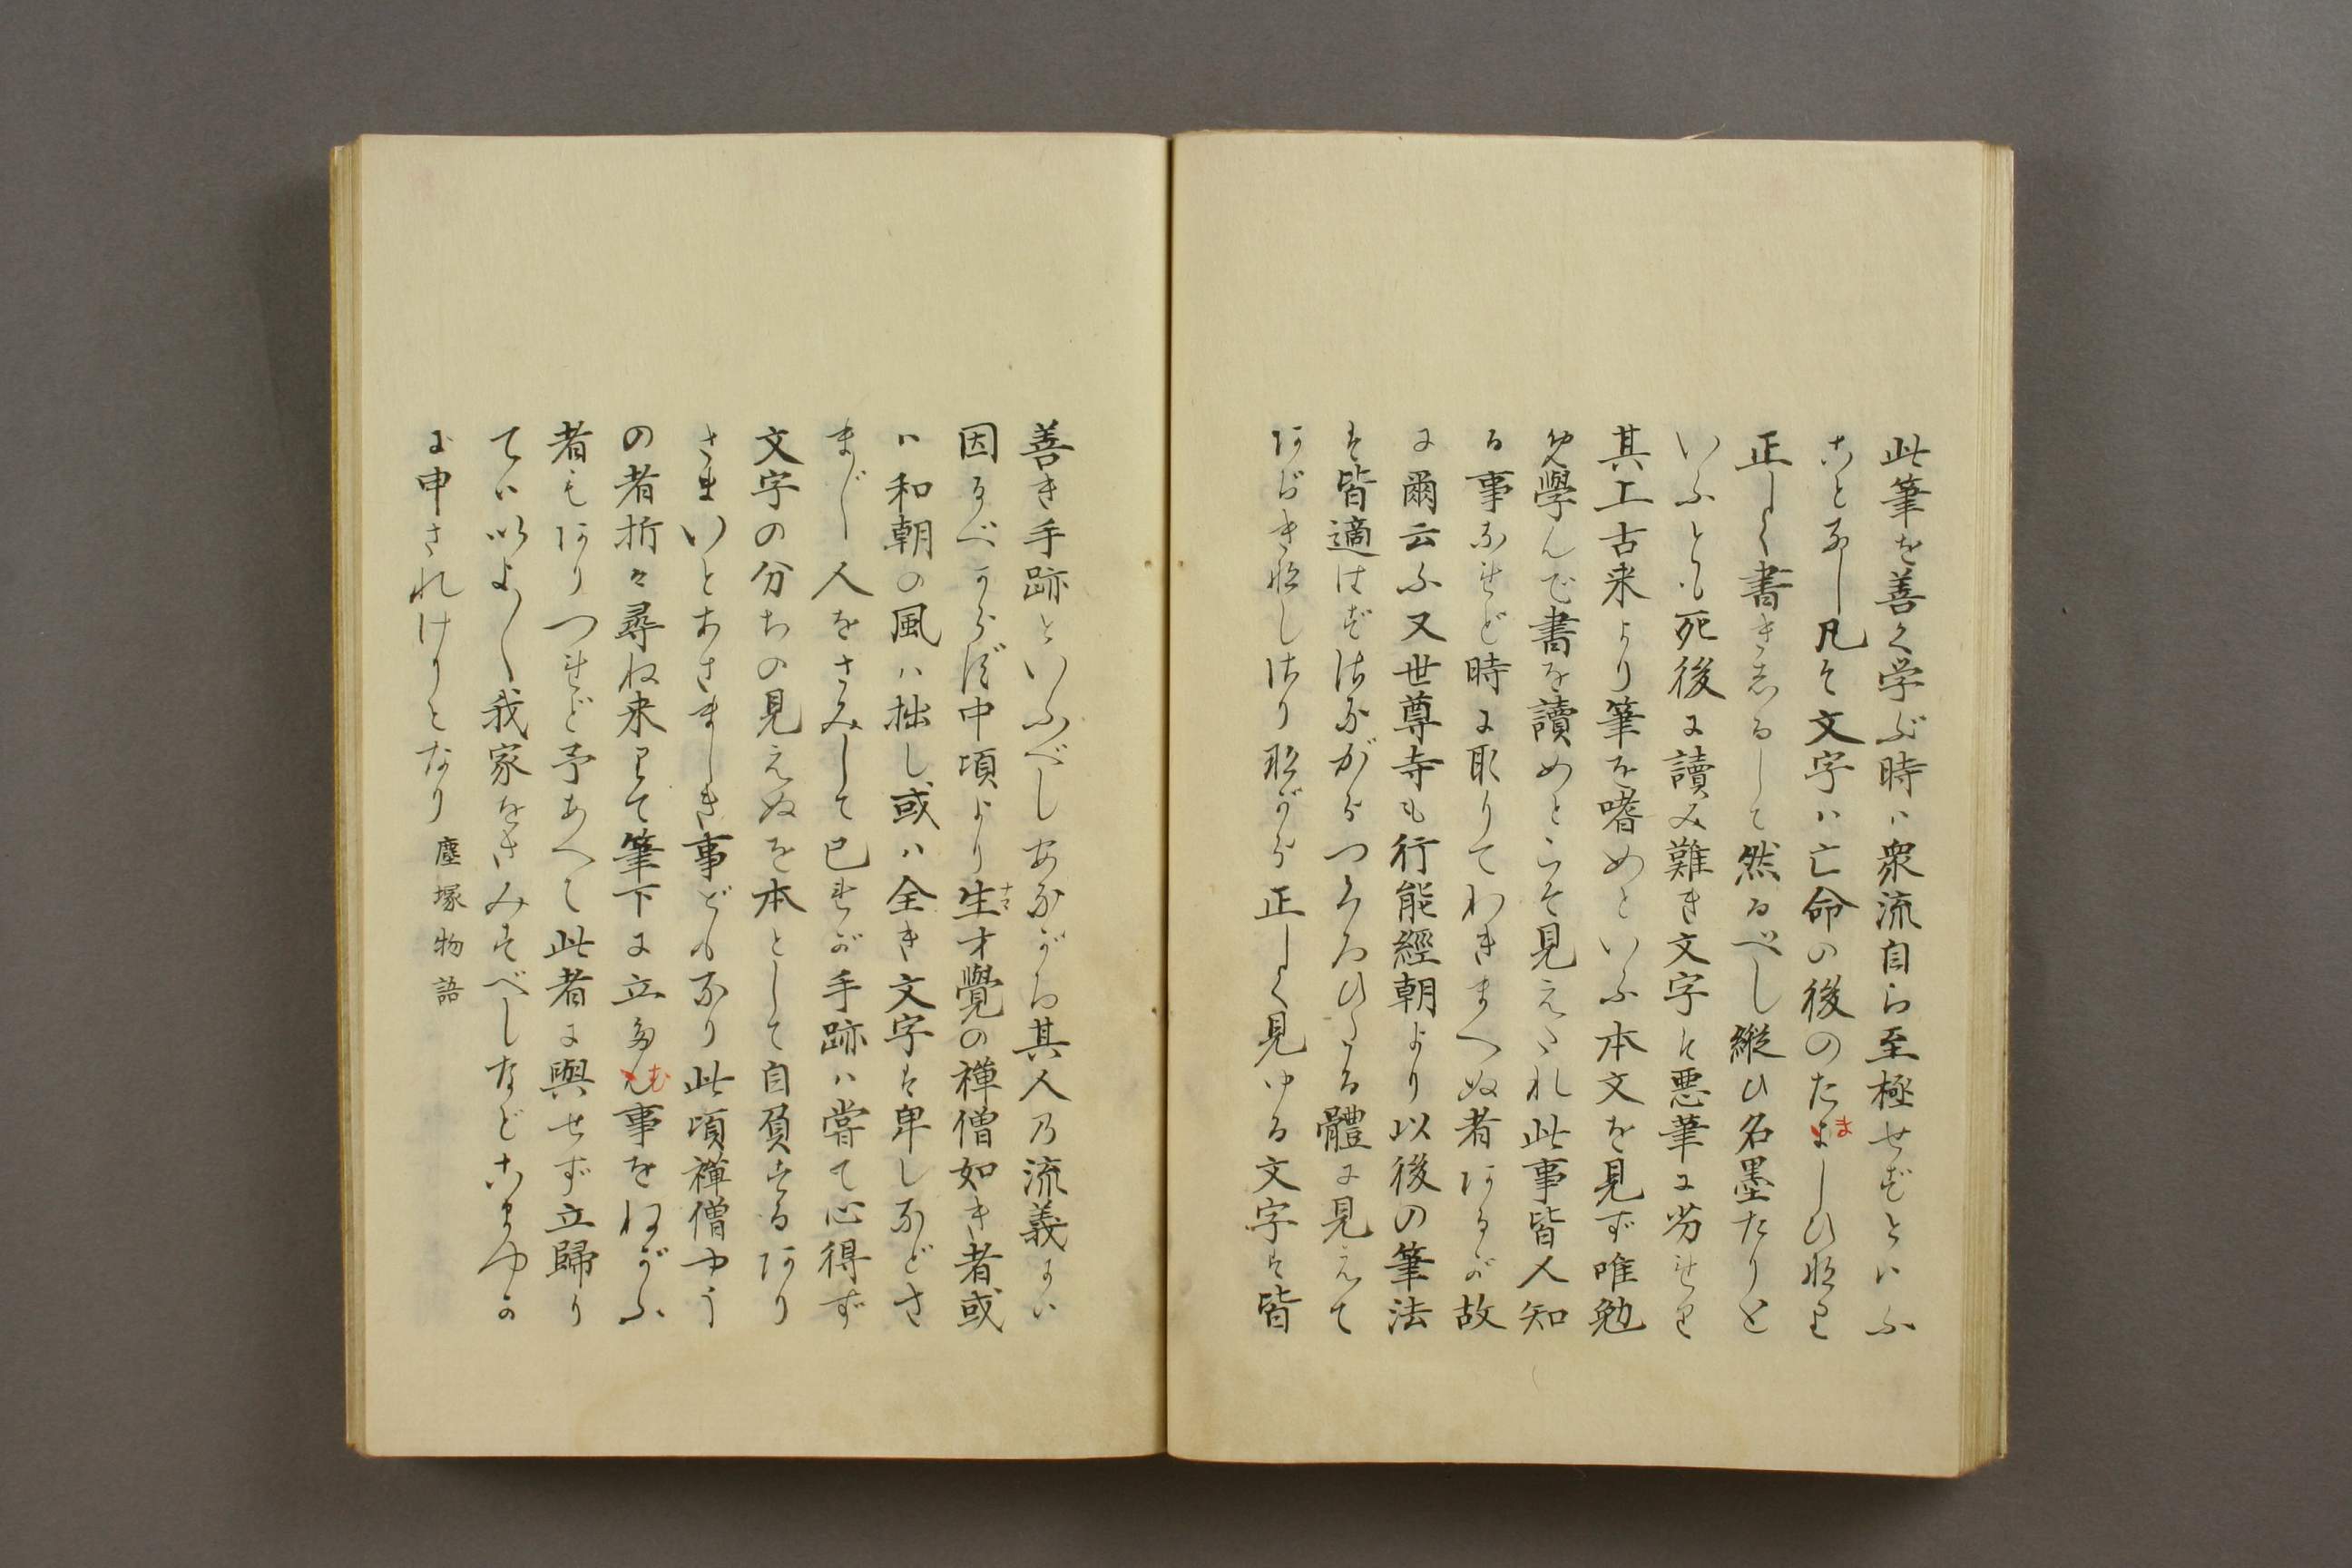 此筆を善く学ぶ時ハ衆流自ら至極せずといふ
ことなし凡そ文字ハ亡命の後のたましひ也里
正しく書きしるして然るべし縦ひ名墨たりと
いふとも死後に讀み難き文字ハ悪筆に劣れり
其上古来より筆を嗜めといふ本文を見ず唯勉
め學んで書を讀めとこそ見えたれ此事皆人知
る事なれど時に取りてわきまへぬ者あるが故
に爾云ふ又世尊寺も行能經朝より以後の筆法
は皆適はずはながらつくろひたる體に見えて
あぢき也しはり也がら正しく見ゆる文字は皆
善き手跡といふべしあながち其人乃流義にハ
因るべからず中頃より生才覺の禅僧如き者或
ハ和朝の風ハ拙し或ハ全き文字は卑しなどさ
まじ人をさみして己れが手跡ハ嘗て心得ず
文字の分ちの見えぬを本として自負するあり
さまいとあさましき事ども多り此頃禅僧やう
の者折々尋ね来りて筆下に立たむ事をねがふ
者もありつれど予あへて此者に與せず立歸り
てハ以よ〱我家をさみすべしなどこまやか
に申されけりとなり 塵塚物語